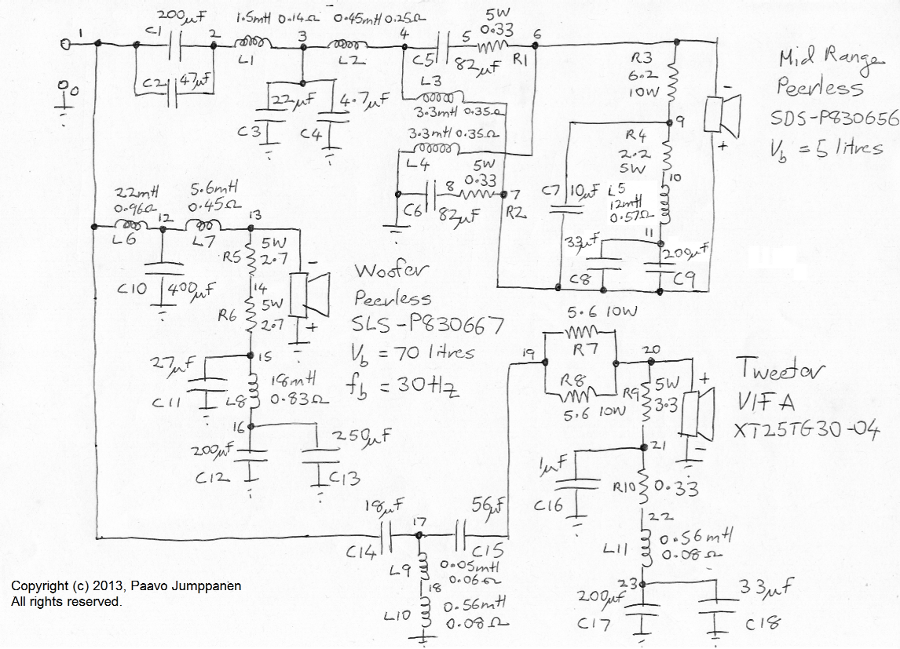 200µF
C1
C2
47µF
1
2
0
1.5mH 0.14Ω
L1
3
0.45mH 0.25Ω
L2
4
22µF
C3
4.7µF
C4
C5
5
82µF
5W
0.33
R1
6
L3
3.3mH 0.35Ω
3.3mH 0.35Ω
L4
5W
0.33
8
C6
82µF
7
R2
R3
6.2
10W
9
R4
2.2
5W
10
C7
10µF
L5
12mH
0.57Ω
11
33µF
C8
200µF
C9
-
+
Mid Range
Peerless
SDS-P830656
Vb = 5 litres
22mH
0.96Ω
L6
12
5.6mH
0.45Ω
L7
13
C10
400µF
R5
5W
2.7
14
R6
5W
2.7
15
-
+
Woofer
Peerless
SLS-P830667
Vb = 70 litres
fb = 30Hz
27µF
C11
L8
18mH
0.83Ω
16
200µF
C12
250µF
C13
18µF
C14
17
56µF
C15
L9
0.05mH
0.06Ω
18
L10
0.56mH
0.08Ω
19
5.6 10W
R7
R8
5.6 10W
20
R9
5W
3.3
+
-
Tweeter
VIFA
XT25TG30-04
21
1µF
C16
R10
0.33
22
L11
0.56mH
0.08Ω
23
200µF
C17
33µF
C18
Copyright (c) 2013, Paavo Jumppanen
All rights reserved.